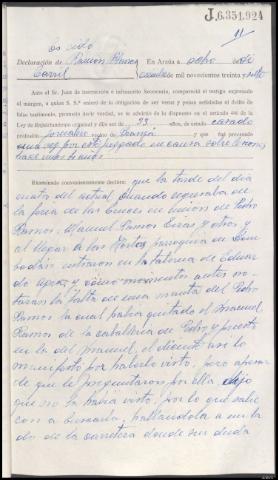 J.6.351.924
11
Declaración de Ramón Blanco En Arzúa a ocho de
Carril de mil novecientos treinta y
Ante el Sr. Juez de instrucción e infrascrito Secretario, compareció el testigo expresado
al margen, a quien S. S.ª enteró de la obligación de ser veraz y penas señaladas al delito de
falso testimonio, prometió decir verdad, se le advirtió de lo dispuesto en el artículo 446 de la
Ley de Enjuiciamiento criminal y dijo ser de 33 años, de estado casado
profesión jornalero vecino de y que fué procesado
una vez por este juzgado en causa sobre
hace años
Examinado convenientemente declara: que la tarde del día
cuatro del actual, cuando regresaba de
la feria de las Cruces en unión de Pedro
Ramos, Manuel Ramos Eiras y otros
al llegar a las parroquia de
entraron en la taberna de Eduar
do y varios momentos antes no-
taron la falta de una manta del Pedro
Ramos la cual había quitado el Manuel
Ramos de la caballería de Pedro y puesto
en la del Manuel, el dicente no lo
manifestó por haberlo visto, pero apesar
de que le preguntaron por ella dijo
que no la había visto, por lo que salie
ron a buscarla, hallándola a un la
do de la carretera donde sin duda